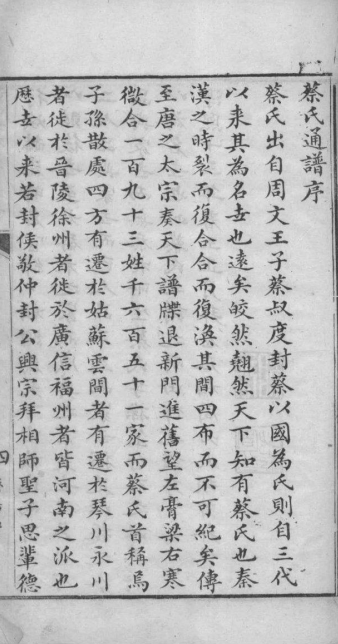 蔡氏通譜序
蔡氏出自周文王子蔡叔度封蔡以國為氏則自三代
以来其為名世也遠矣皎然翹然天下知有蔡氏也秦
漢之時裂而復合合而復渙其間四布而不可紀矣傳
至唐之太宗奏天下譜牒退新門進舊望左膏梁右寒
微合一百九十三姓千六百五十一家而蔡氏首稱焉
子孫散處四方有遷於姑蘇雲間者有遷於琴川永川
者徙於晋陵徐州者徙於廣信福州者皆河南之派也
歷世以来若封侯敬仲封公興宗拜相師聖子思輩德
四